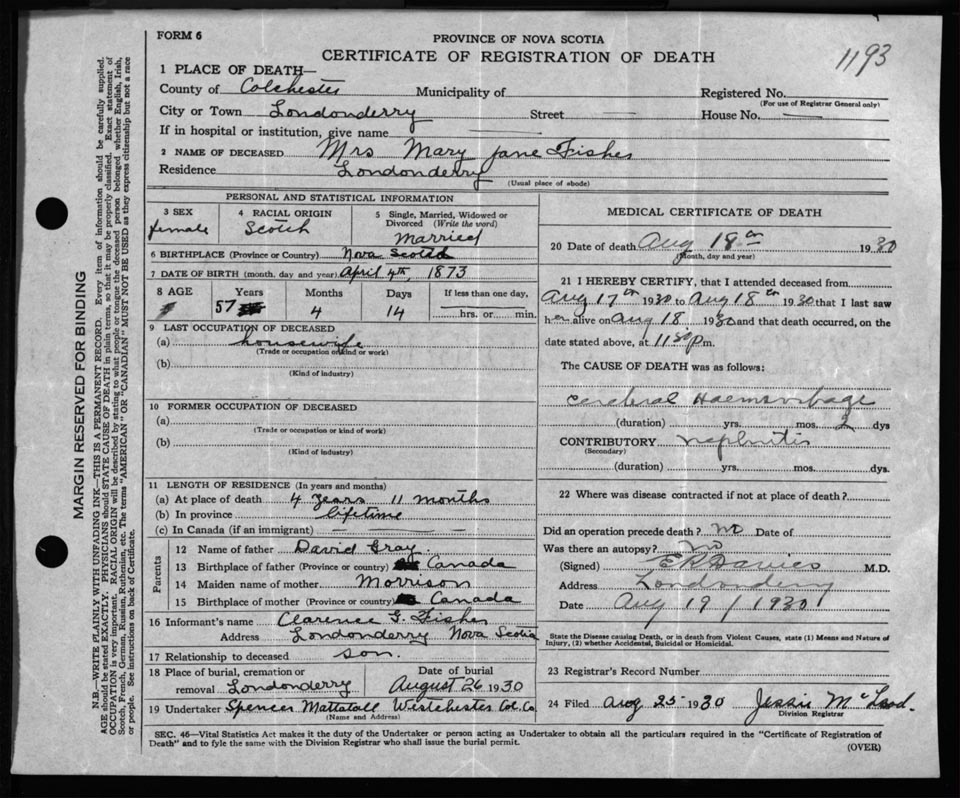 FORM 6
PROVINCE OF NOVA SCOTIA
CERTIFICATE OF REGISTRATION OF DEATH
1193
1 PLACE OF DEATH—
County of Colchester Municipality of Registered No.
(For use of Registrar General only)
City or Town Londonderry Street — House No. —
If in hospital or institution, give name —
2 NAME OF DECEASED Mrs Mary Jane Fisher
Residence Londonderry
(Usual place of abode)
PERSONAL AND STATISTICAL INFORMATION
3 SEX female
4 RACIAL ORIGIN Scotch
5 Single, Married, Widowed or Divorced (Write the word) Married
6 BIRTHPLACE (Province or Country) Nova Scotia
7 DATE OF BIRTH (month, day and year) April 4th, 1873
8 AGE Years Months Days If less than one day,
57 4 14 hrs. or min.
9 LAST OCCUPATION OF DECEASED
(a) housewife
(Trade or occupation or kind or work)
(b)
(Kind of industry)
10 FORMER OCCUPATION OF DECEASED
(a)
(Trade or occupation or kind of work)
(b)
(Kind of industry)
11 LENGTH OF RESIDENCE (In years and months)
(a) At place of death 4 years 11 months
(b) In province lifetime
(c) In Canada (if an immigrant) —
Parents
12 Name of father David Gray.
13 Birthplace of father (Province or country) Canada
14 Maiden name of mother Morrison
15 Birthplace of mother (Province or country) Canada
16 Informant's name Clarence G. Fisher
Address Londonderry Nova Scotia
17 Relationship to deceased son.
18 Place of burial, cremation or removal Londonderry
Date of burial August 26 1930
19 Undertaker Spencer Mattatall Westchester Col. Co.
(Name and Address)
MEDICAL CERTIFICATE OF DEATH
20 Date of death Aug 18th 1930
(Month, day and year)
21 I HEREBY CERTIFY, that I attended deceased from
Aug 17th 1930 to Aug 18th 1930 that I last saw
her alive on Aug 18 1930 and that death occurred, on the
date stated above, at 11 30 P.m.
The CAUSE OF DEATH was as follows:
Cerebral Haemorrhage
(duration) yrs. mos. 2 dys
CONTRIBUTORY nephritis
(Secondary)
(duration) yrs. mos. dys.
22 Where was disease contracted if not at place of death?
Did an operation precede death? no Date of
Was there an autopsy? no
(Signed) E R Davies M.D.
Address Londonderry
Date Aug 19 / 1930
State the Disease causing Death, or in death from Violent Causes, state (1) Means and Nature of
Injury, (2) whether Accidental, Suicidal or Homicidal.
23 Registrar's Record Number
24 Filed Aug 25 1930 Jessie McLeod.
Division Registrar
SEC. 46—Vital Statistics Act makes it the duty of the Undertaker or person acting as Undertaker to obtain all the particulars required in the "Certificate of Registration of
Death" and to fyle the same with the Division Registrar who shall issue the burial permit.
(OVER)
MARGIN RESERVED FOR BINDING
N.B.—WRITE PLAINLY WITH UNFADING INK—THIS IS A PERMANENT RECORD. Every item of information should be carefully supplied.
AGE should be stated EXACTLY. PHYSICIANS should STATE CAUSE OF DEATH in plain terms, so that it may be properly classified. Exact statement of
OCCUPATION is very important. RACIAL ORIGIN will be described by stating to what people or tongue the deceased person belonged whether English, Irish,
Scotch, French, German, Russian, Ruthenian, etc. The terms "AMERICAN" OR "CANADIAN" MUST NOT BE USED as they express citizenship but not a race
or people. See instructions on back of Certificate.